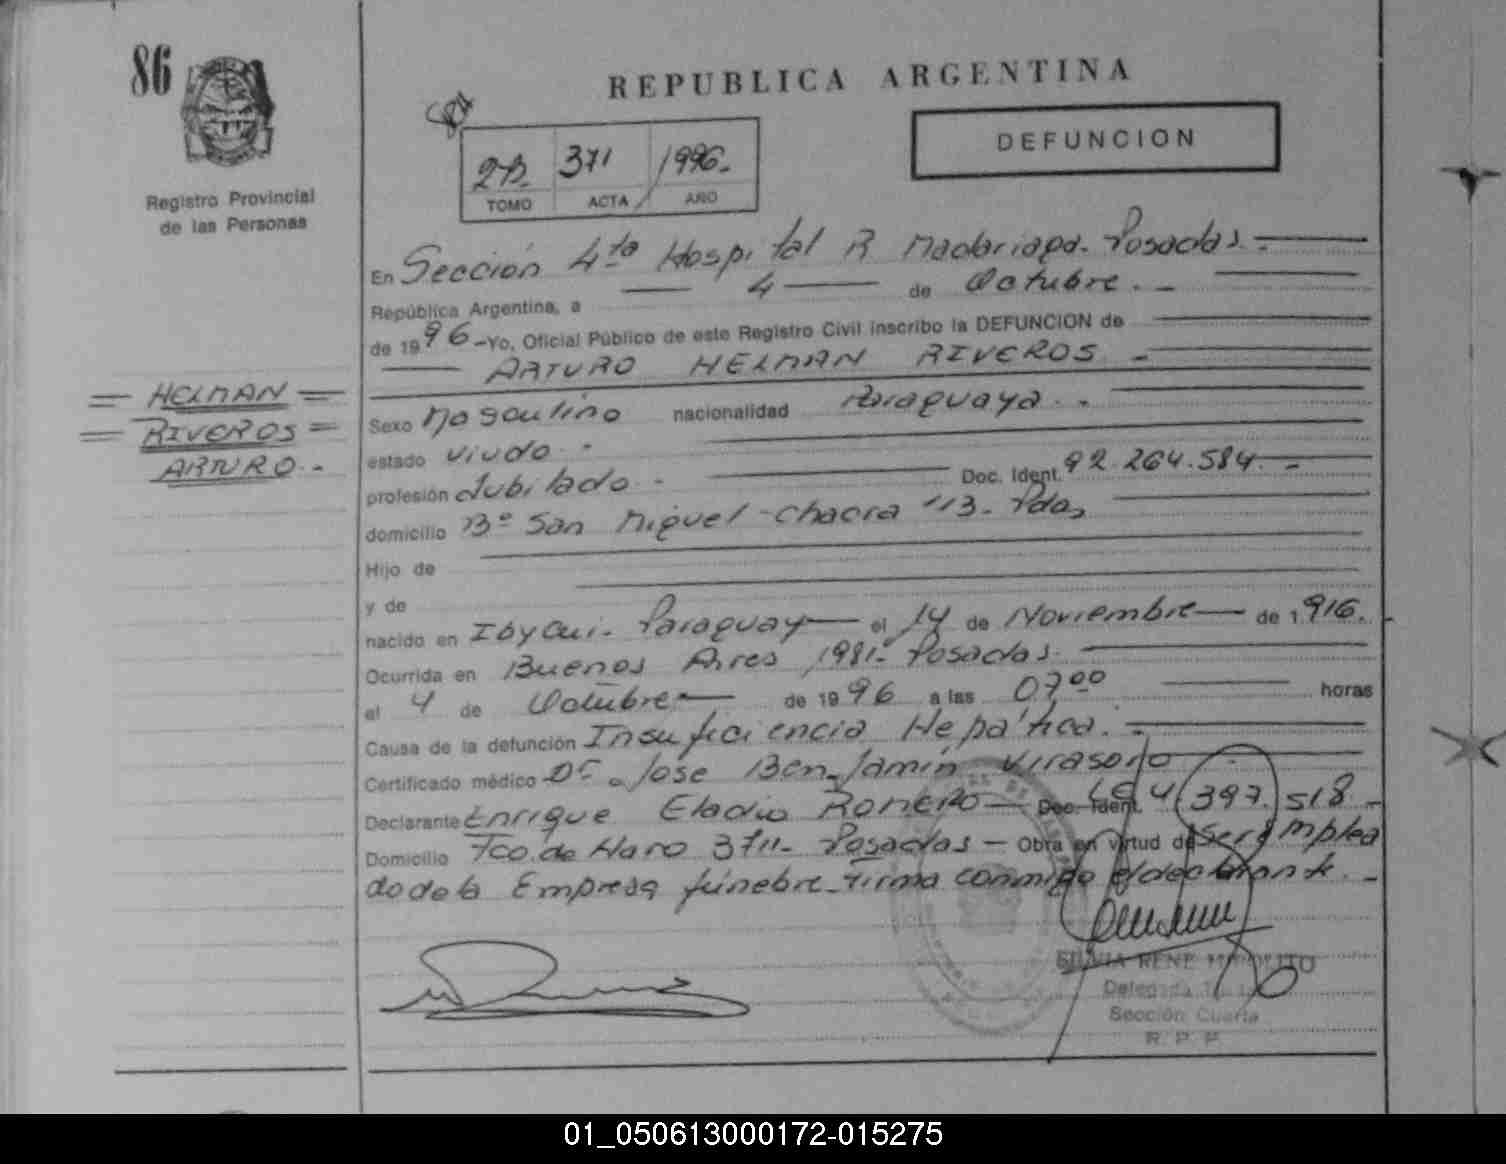 86
REPUBLICA ARGENTINA
DEFUNCION
2B. 371 1996.-
TOMO ACTA AÑO
Registro Provincial
de las Personas
En Sección 4ta Hospital R Madariaga. Posadas.-
República Argentina, a 4 de Octubre.-
de 1996 -Yo, Oficial Público de este Registro Civil inscribo la DEFUNCION de
ARTURO HELMAN RIVEROS.-
= HELMAN =
= RIVEROS =
ARTURO.-
Sexo Masculino nacionalidad Paraguaya.-
estado viudo.-
profesión Jubilado.- Doc. Ident. 92.264.584.-
domicilio Bº San Miguel-chacra 113- Pdas
Hijo de
y de
nacido en Ibycui- Paraguay el 14 de Noviembre de 1.916.-
Ocurrida en Buenos Aires 1981- Posadas.-
el 4 de Octubre de 1996 a las 07 00 horas
Causa de la defunción Insuficiencia Hepática.-
Certificado médico Dr. Jose Benjamín Virasoro
Declarante Enrique Eladio Romero Doc. Ident. 4 397 518.-
Domicilio Fco. de Haro 3711- Posadas - Obra en virtud de Ser Emplea
do de la Empresa fúnebre-Firma conmigo el declarante.-
SILVIA RENE HIPOLITO
Delegada
Sección Cuarta
R. P. P.
01_050613000172-015275